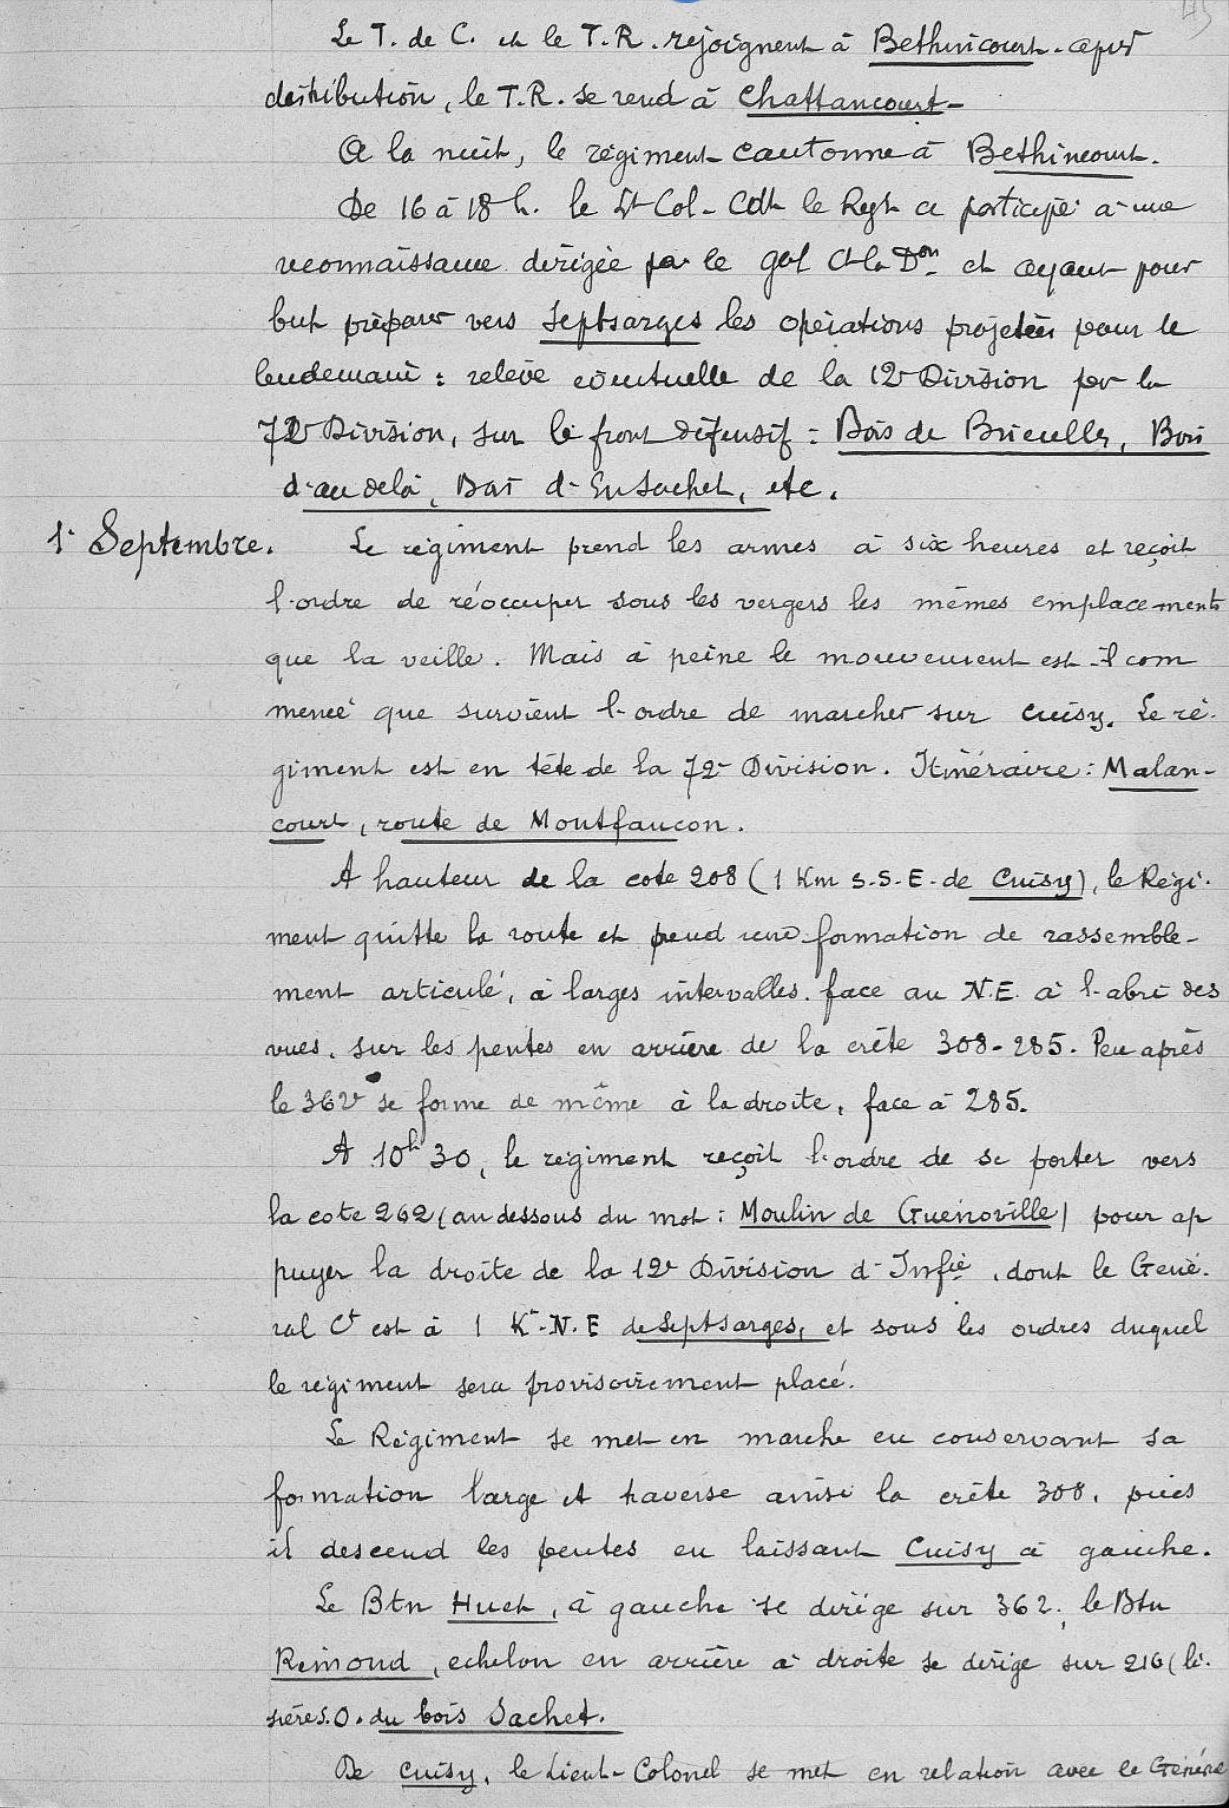 Le T. de C. et le T.R. rejoignent à Bethincourt. après
distribution, le T.R. se rend à Chattancourt-
A la nuit, le régiment cantonne à Bethincourt.
De 16 à 18 h. le Lt Col- Cdt le Regt a participé à une
reconnaissance dirigée par le gal Ct la Don et ayant pour
but préparer vers Septsarges les opérations projetées pour le
lendemain : relève éventuelle de la 12e Division par la
72e Division, sur le front défensif : Bois de Brieulles, Bois
d'au delà, Bois d'En Sachet, etc.
1er Septembre. Le régiment prend les armes à six heures et reçoit
l'ordre de réoccuper sous les vergers les mêmes emplacements
que la veille. Mais à peine le mouvement est-il com
mencé que survient l'ordre de marcher sur Cuisy. Le ré-
giment est en tête de la 72e Division. Itinéraire : Malan-
court, route de Montfaucon.
A hauteur de la cote 208 (1 Km S.S.E. de Cuisy), le Régi-
ment quitte la route et prend une formation de rassemble-
ment articulé, à larges intervalles. face au N.E. à l'abri des
vues, sur les pentes en arrière de la crête 308-285. Peu après
le 362e se forme de même à la droite, face à 285.
A 10h30, le régiment reçoit l'ordre de se porter vers
la cote 262 (au dessous du mot : Moulin de Guenoville) pour ap
puyer la droite de la 12e Division d'Infie, dont le Géné-
ral Ct est à 1 Km. N.E de Septsarges, et sous les ordres duquel
le régiment sera provisoirement placé.
Le Régiment se met en marche en conservant sa
formation large et traverse ainsi la crête 308, puis
il descend les pentes en laissant Cuisy à gauche.
Le Btn Huet, à gauche se dirige sur 362, le Btn
Rémond, échelon en arrière à droite se dirige sur 216 (li-
sière S.O. du bois Sachet.
De Cuisy, le Lieut-Colonel se met en relation avec le Généra